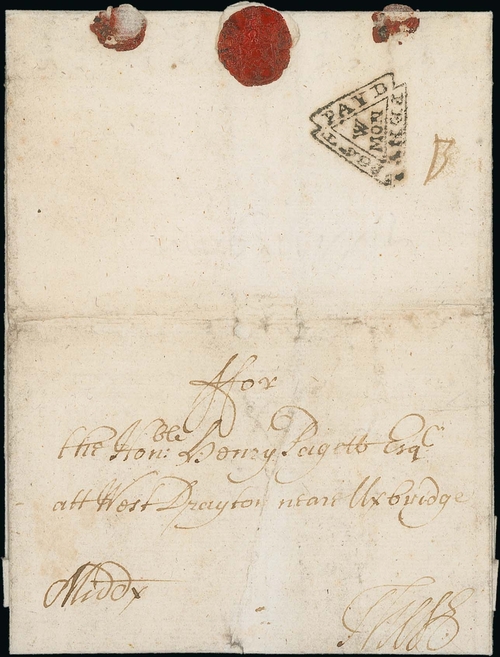 PENY POST PAID
W
MON
ffor
the Honble: Henry Pagett Esqr
att West Drayton neare Uxbridge
Middx